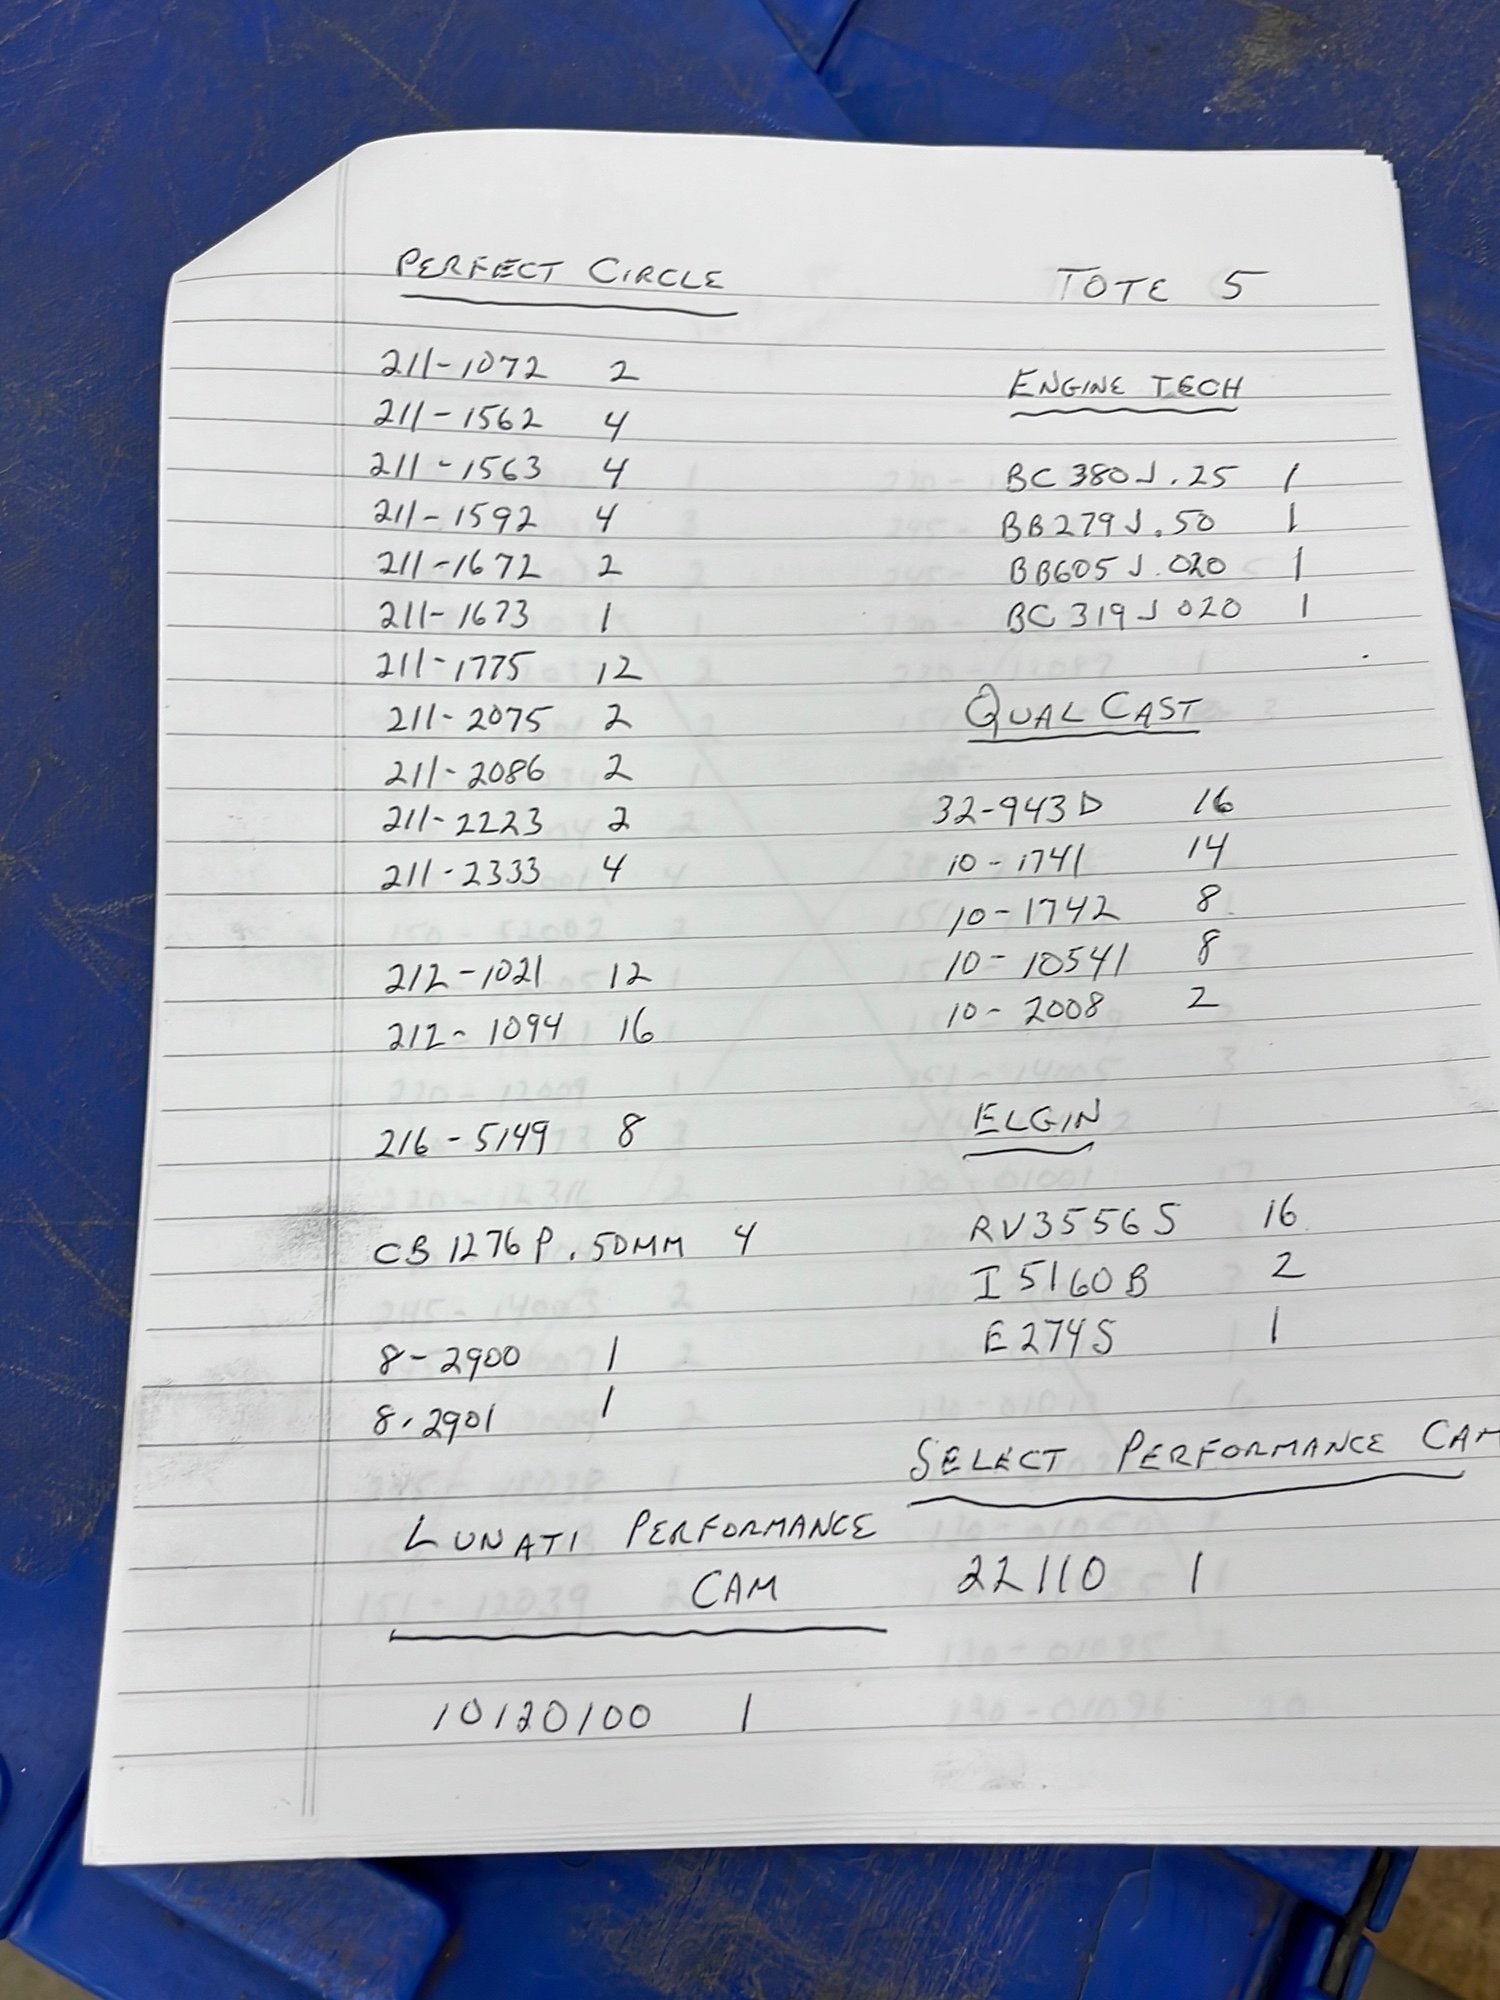 PERFECT CIRCLE
211-1072 2
211-1562 4
211-1563 4
211-1592 4
211-1672 2
211-1673 1
211-1775 12
211-2075 2
211-2086 2
211-2223 2
211-2333 4
212-1021 12
212-1094 16
216-5149 8
CB 1276 P .50MM 4
8-2900 1
8-2901 1
LUNATI PERFORMANCE
CAM
10120100 1
TOTE 5
ENGINE TECH
BC 380J .25 1
BB279J .50 1
BB605J .020 1
BC 319J 020 1
QUAL CAST
32-943D 16
10-1741 14
10-1742 8
10-10541 8
10-2008 2
ELGIN
RV3556S 16
I5160B 2
E274S 1
SELECT PERFORMANCE CAM
22110 1